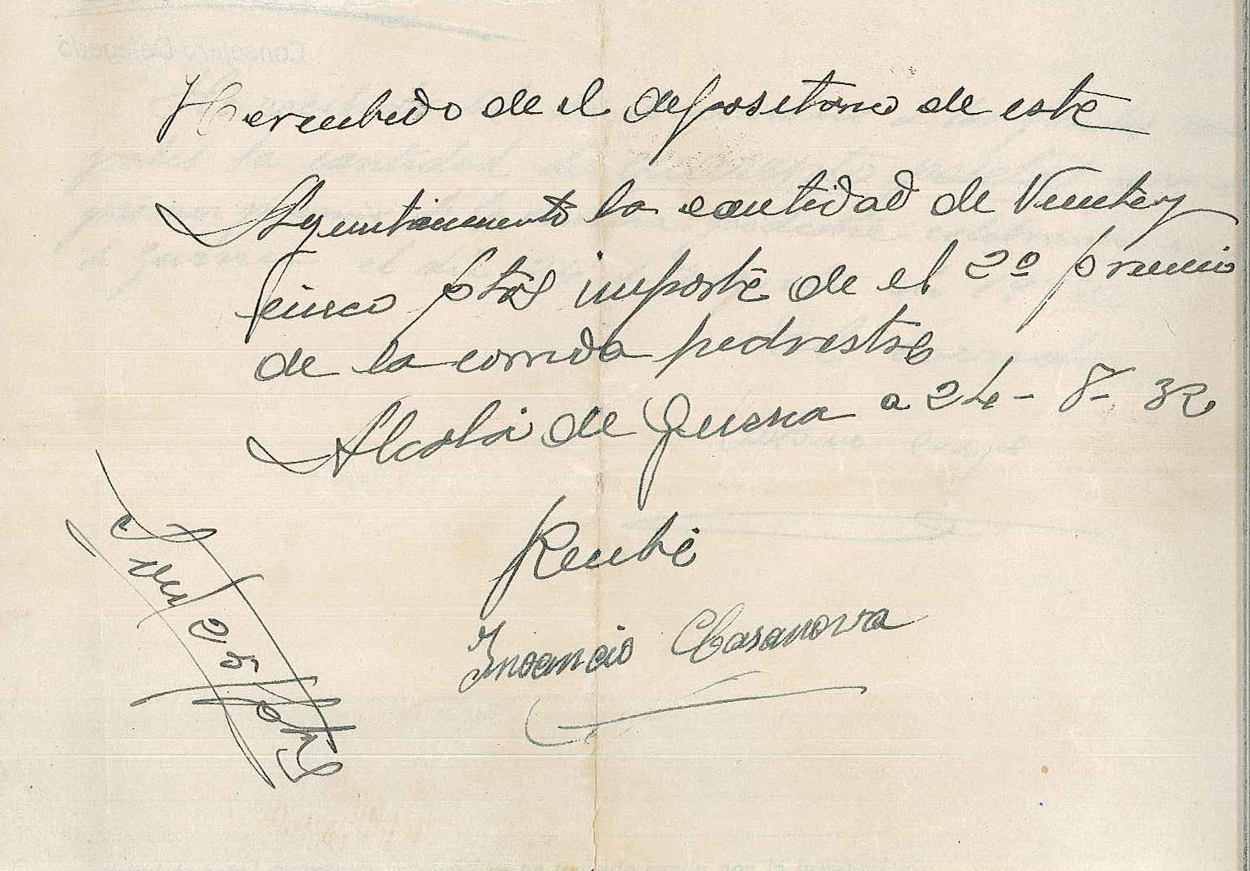 He recibido de el depositario de este
Ayuntamiento la cantidad de Veintey
cinco ptas importe de el 2º premio
de la corrida pedrestre
Alcalá de Gurrea a 24-8-32
Recibí
Inosencio Casanova
Son/25/ptas
Consejero Delegado